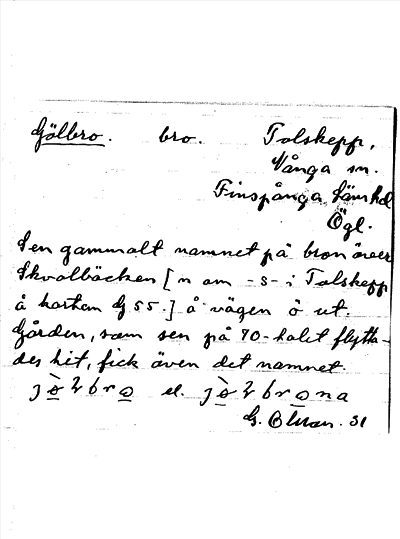 Gölbro. bro. Tolskepp,
Vånga sn.
Finspånga läns hd
Ögl.
Sen gammalt namnet på bron över
Skvalbäcken [n om -s- i Tolskepp
å kartan G 55.] å vägen ö ut.
Gården, som sen på 70-talet flytta-
des hit, fick även det namnet.
el.
G. 31